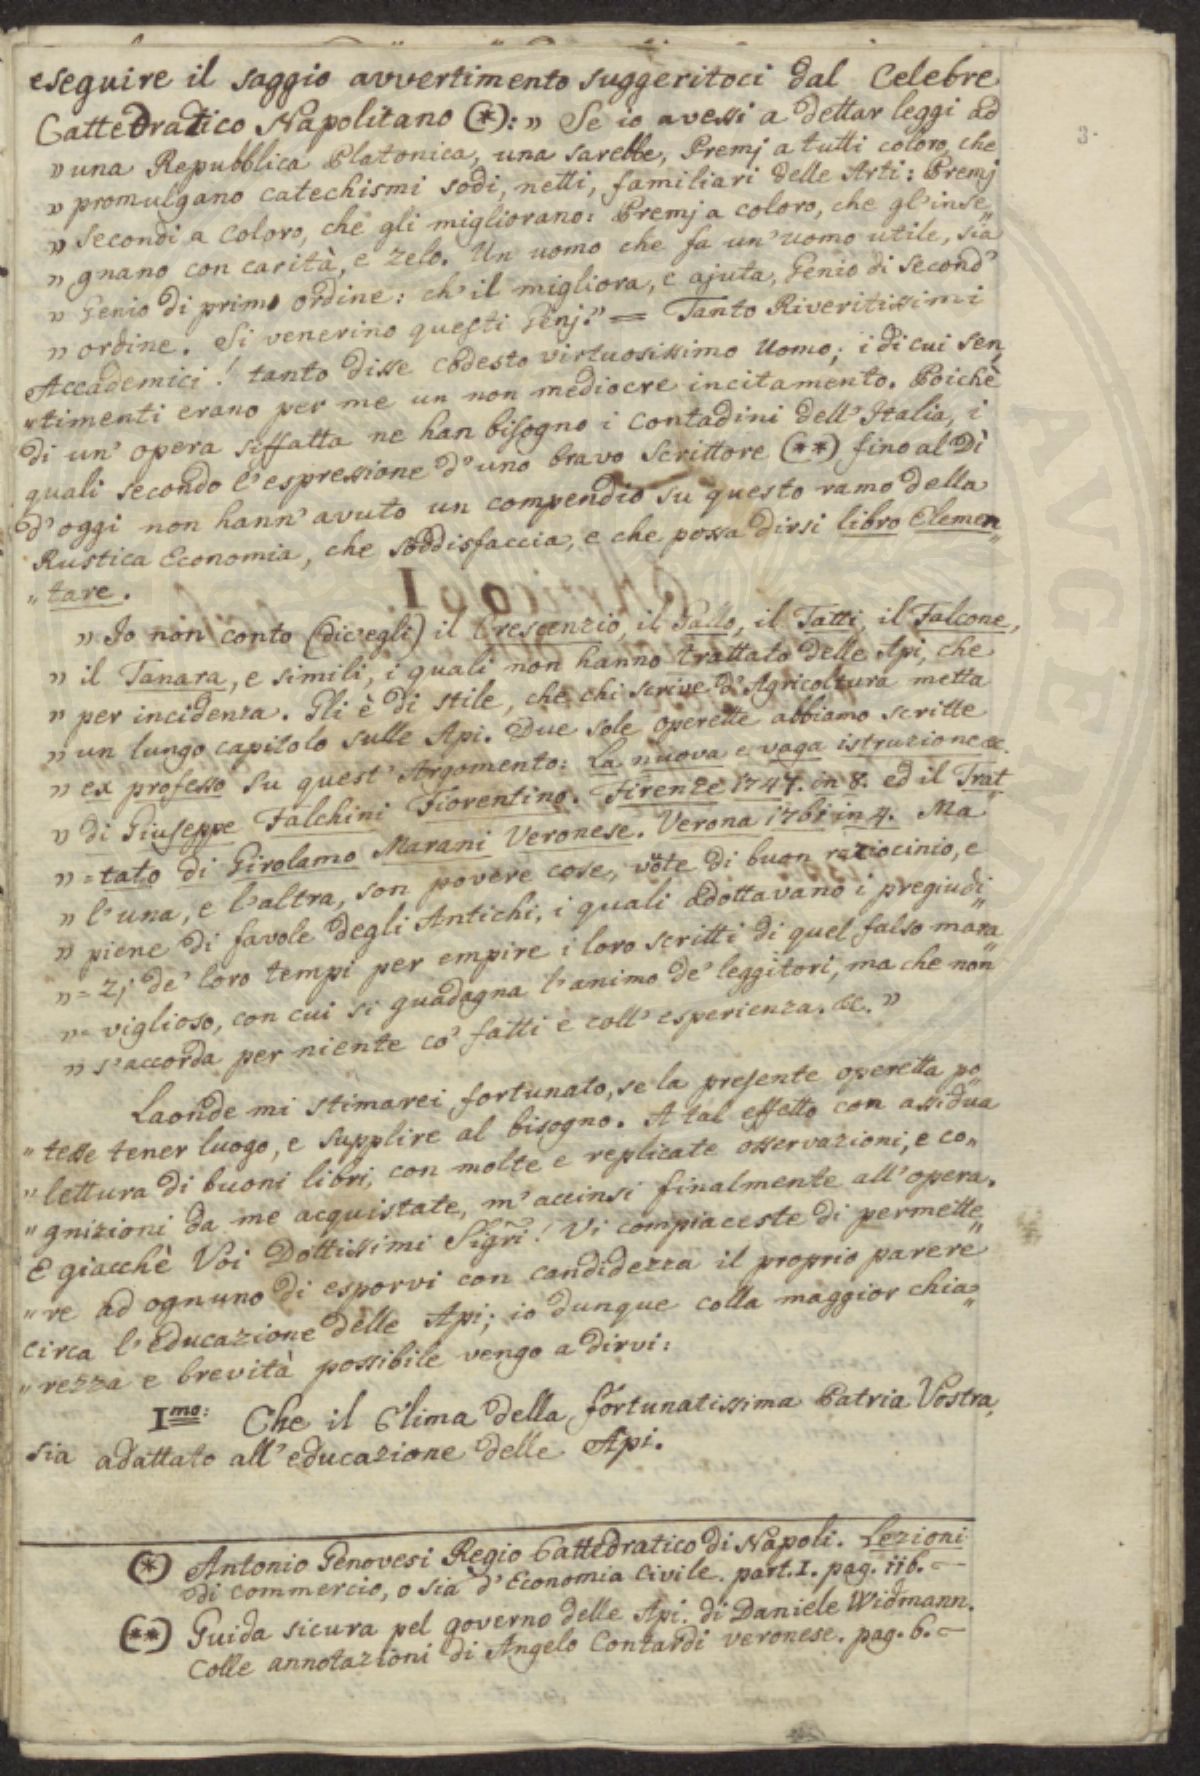 3.
eseguire il saggio avvertimento suggeritoci dal Celebre
Cattedratico Napolitano (*): „ Se io avessi a dettar leggi ad
„ una Repubblica Platonica, una sarebbe, Premj a tutti coloro, che
„ promulgano catechismi sodi, netti, familiari delle Arti: Premj
„ secondi a coloro, che gli migliorano: Premj a coloro, che gl'inse„
„ gnano con carità, e zelo. Un uomo che fa un'uomo utile, sia
„ Genio di primo ordine: ch'il migliora, e ajuta, Genio di second'
„ ordine. Si venerino questi Genj." = Tanto Riveritissimi
Accademici! tanto disse codesto virtuosissimo Uomo; i di cui sen„
„timenti erano per me un non mediocre incitamento. Poichè
di un' opera siffatta ne han bisogno i Contadini dell'Italia, i
quali secondo l'espressione d'uno bravo Scrittore (**) fino al Dì
d'oggi non hann'avuto un compendio su questo ramo della
Rustica Economia, che soddisfaccia, e che possa dirsi libro Elemen„
„tare.
„ Io non conto (dic'egli) il Crescenzio, il Gallo, il Tatti, il Falcone,
„ il Tanara, e simili, i quali non hanno trattato delle Api, che
„ per incidenza. Gli è di stile, che chi scrive d'Agricoltura metta
„ un lungo capitolo sulle Api. Due sole operette abbiamo scritte
„ ex professo su quest'Argomento: La nuova e vaga istruzione &c.
„ di Giuseppe Falchini Fiorentino. Firenze 1747. in 8. ed il Trat
„ =tato di Girolamo Marani Veronese. Verona 1761 in 4. Ma
„ l'una, e l'altra, son povere cose, vôte di buon raziocinio, e
„ piene di favole degli Antichi, i quali adottavano i pregiudi„
„ = zj de' loro tempi per empire i loro scritti di quel falso mara„
„ = viglioso, con cui si guadagna l'animo de' leggitori, ma che non
„ s'accorda per niente co' fatti e coll' esperienza. &c. „
Laonde mi stimarei fortunato, se la presente operetta po„
„ tesse tener luogo, e supplire al bisogno. A tal effetto con assidua
„ lettura di buoni libri, con molte e replicate osservazioni, e co„
„ gnizioni da me acquistate, m'accinsi finalmente all'opera.
E giacchè Voi Dottissimi Sigri! Vi compiaceste di permette„
„ re ad ognuno di esporvi con candidezza il proprio parere
circa l'educazione delle Api; io dunque colla maggior chia„
„ rezza e brevità possibile vengo a dirvi:
Imo: Che il Clima della fortunatissima Patria Vostra,
sia adattato all'educazione delle Api.
(*) Antonio Genovesi Regio Cattedratico di Napoli. Lezioni
di commercio, o sia d'Economia Civile. part. I. pag. 116.
(**) Guida sicura pel governo delle Api. di Daniele Widmann.
Colle annotazioni di Angelo Contardi veronese. pag. 6.